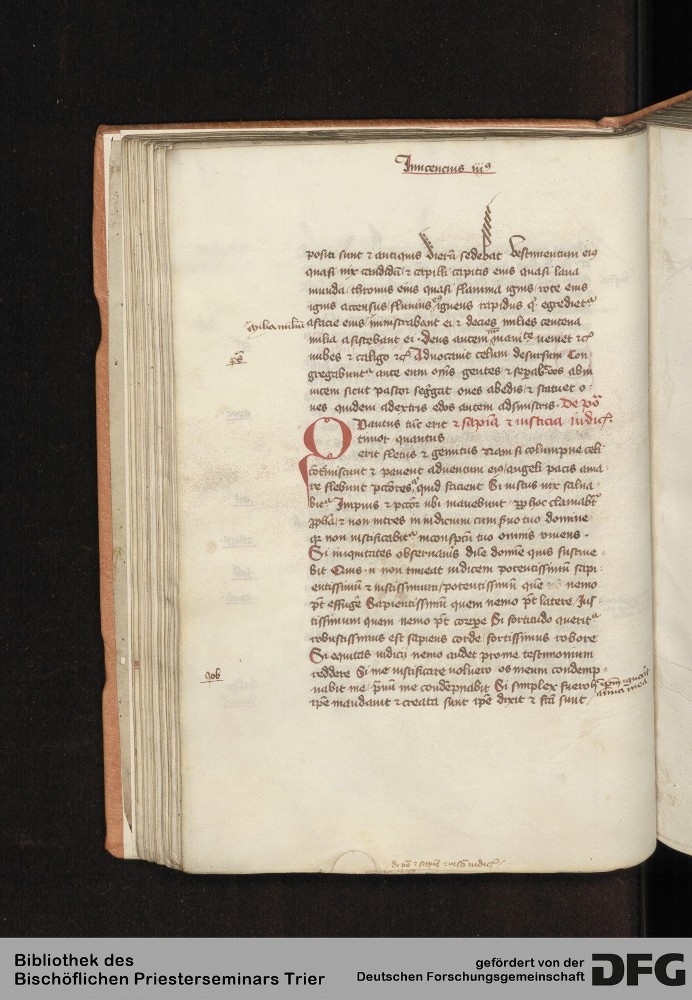 Innocencius iiiꝰ
positi sunt ⁊ antiquus dierū sedebat Vestimentum eiꝰ
quasi nix candidū ⁊ capilli capitis eius quasi lana
munda / thronus eius quasi flamma ignis / rote eius
ignis accensus / fluuius igneus rapidus egrediet᷑
afacie eius / ministrabant ei ⁊ decies milies centena
milia asistebant ei . Deus autem veniet ⁊c
nubes ⁊ caligo ⁊c Aduocauit celum desursum Con
gregabunt᷑ ante eum om̄s gentes ⁊ sepabit eos abin
uicem sicut pastor segͤgat oues abedis / ⁊ statuet o-
ues quidem adextris edos autem adsinistris . De po
Pauens tūc erit ⁊ sapīa ⁊ iusticia iudic
timor quantus
erit fletus ⁊ gemitus Nam si columpne celi
cōtmiscunt ⁊ pauent aduentum eiꝰ / angeli pacis ama
re flebunt pccōres quid facient Si iustus uix salua
bit᷑ Impius ⁊ pccōr ubi manebunt ꝓphoc clamabat
ꝓpha / ⁊ non intres in iudicium cum seruo tuo domine
quia non iustificabit᷑ inconspcū tuo omnis viuens .
Si iniquitates obseruaūis dn̄e domīe quis sustine-
bit Quis .n. non timeat iudicem potentissimū sapi-
entissimū ⁊ iustissimum / potentissimū quē nemo
pōt effugē Sapientissimū quem nemo pōt latere Ius-
tissimum quem nemo pōt corrpe Si fortitudo querit᷑
robustissimus est sapiens corde fortissimus robore
Si equitas iudicij nemo audet pro me testimonium
reddere Si me iustificare voluero os meum condemp-
nabit me / p̄uū me condēpnabit Si simplex fuero
ip̄e mandauit ⁊ creata sunt ip̄e dixit ⁊ fc̄a sunt
milia miliū
pˢ
Job
anima mea
de po ⁊ sapīa ⁊ iusticia iudic
Bibliothek des
Bischöflichen Priesterseminars Trier
gefördert von der
Deutschen Forschungsgemeinschaft
DFG